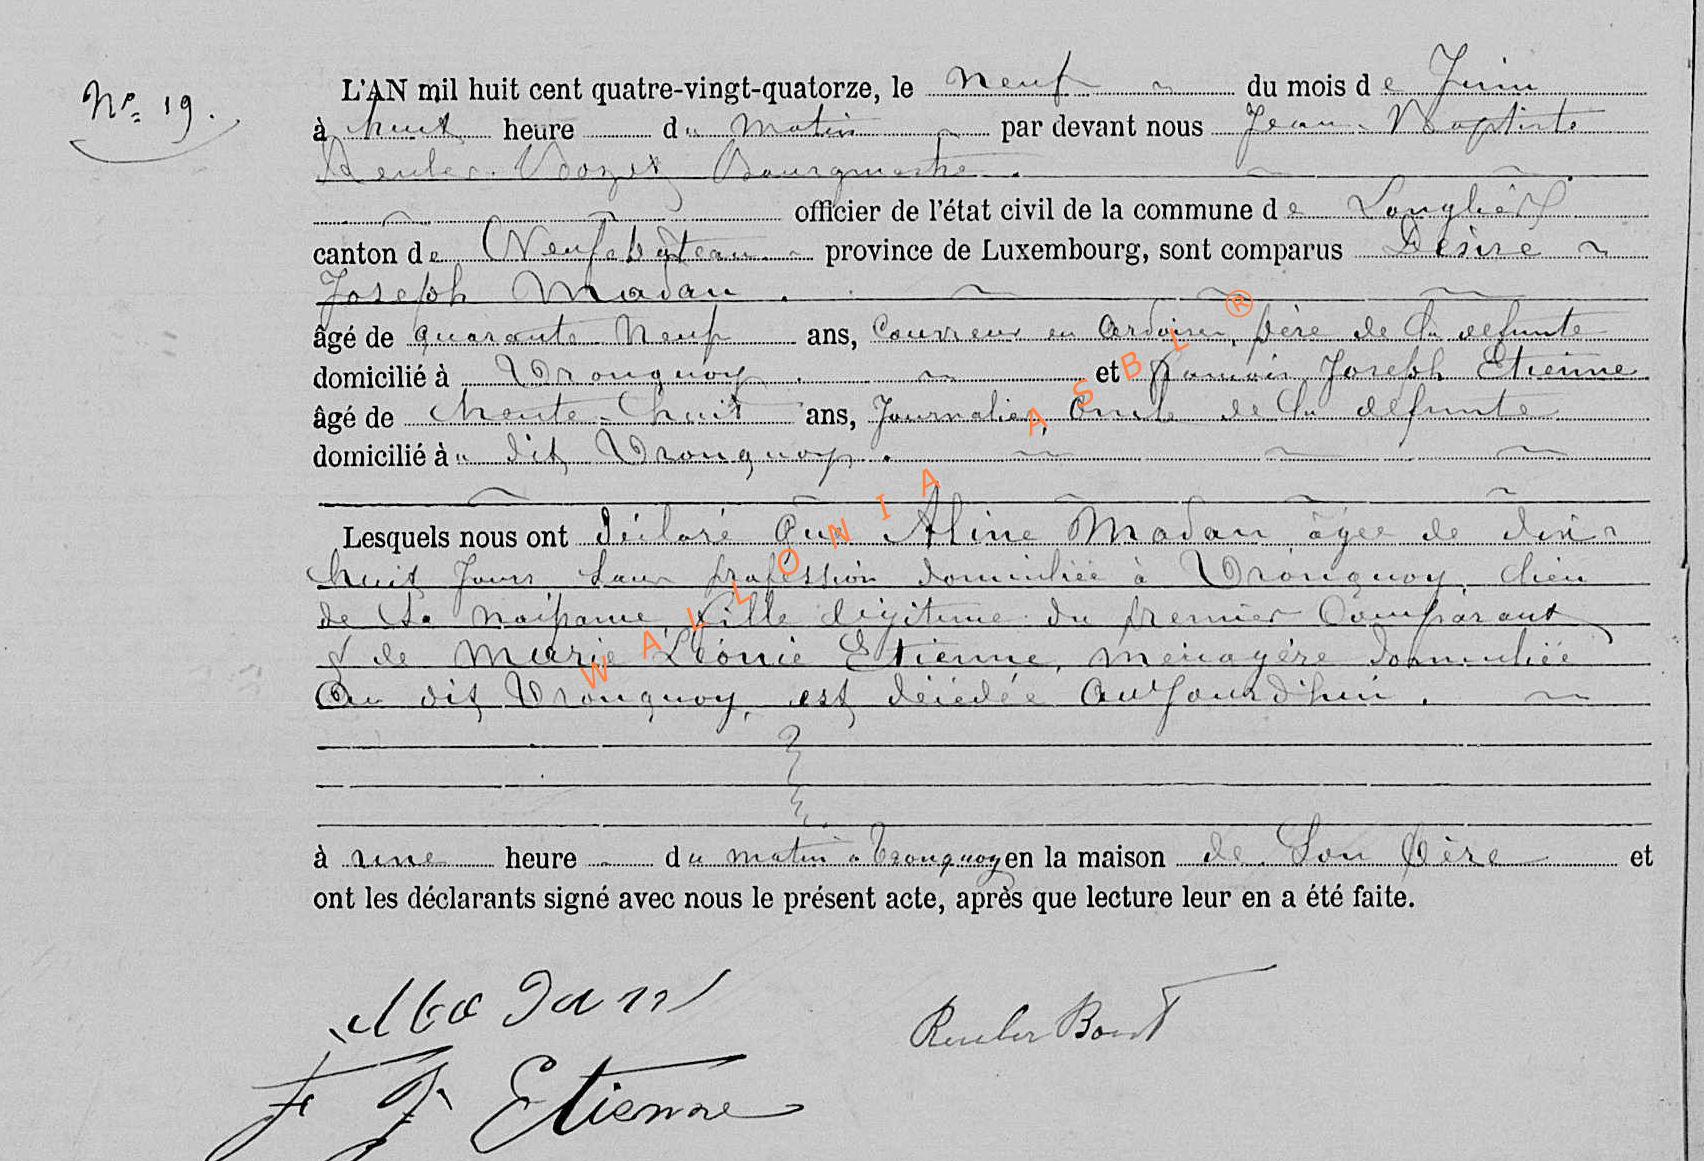 N° 19.
L'AN mil huit cent quatre-vingt-quatorze, le neuf du mois de Juin
à huit heure du matin par devant nous Jean-Baptiste
Reuler Bourgmestre.
officier de l'état civil de la commune de Longlier
canton de Neufchâteau province de Luxembourg, sont comparus Désiré
Joseph Madan.
âgé de quarante neuf ans, Couvreur en Ardoises, père de la défunte
domicilié à Tronquoy. et François Joseph Etienne
âgé de trente-huit ans, Journalier, Oncle de la défunte
domicilié à u dit Tronquoy.
Lesquels nous ont déclaré que Aline Madan, âgée de dix
huit Jours sans profession domiciliée à Tronquoy, lieu
de sa naissance, fille légitime du premier Comparant
& de Marie Léonie Etienne, ménagère domiciliée
Au dit Tronquoy, est décédée Aujourd'hui.
à une heure du matin à Tronquoy en la maison de Son Père et
ont les déclarants signé avec nous le présent acte, après que lecture leur en a été faite.
Madan
Reuler
F J Etienne
WALLONIA ASBL ®